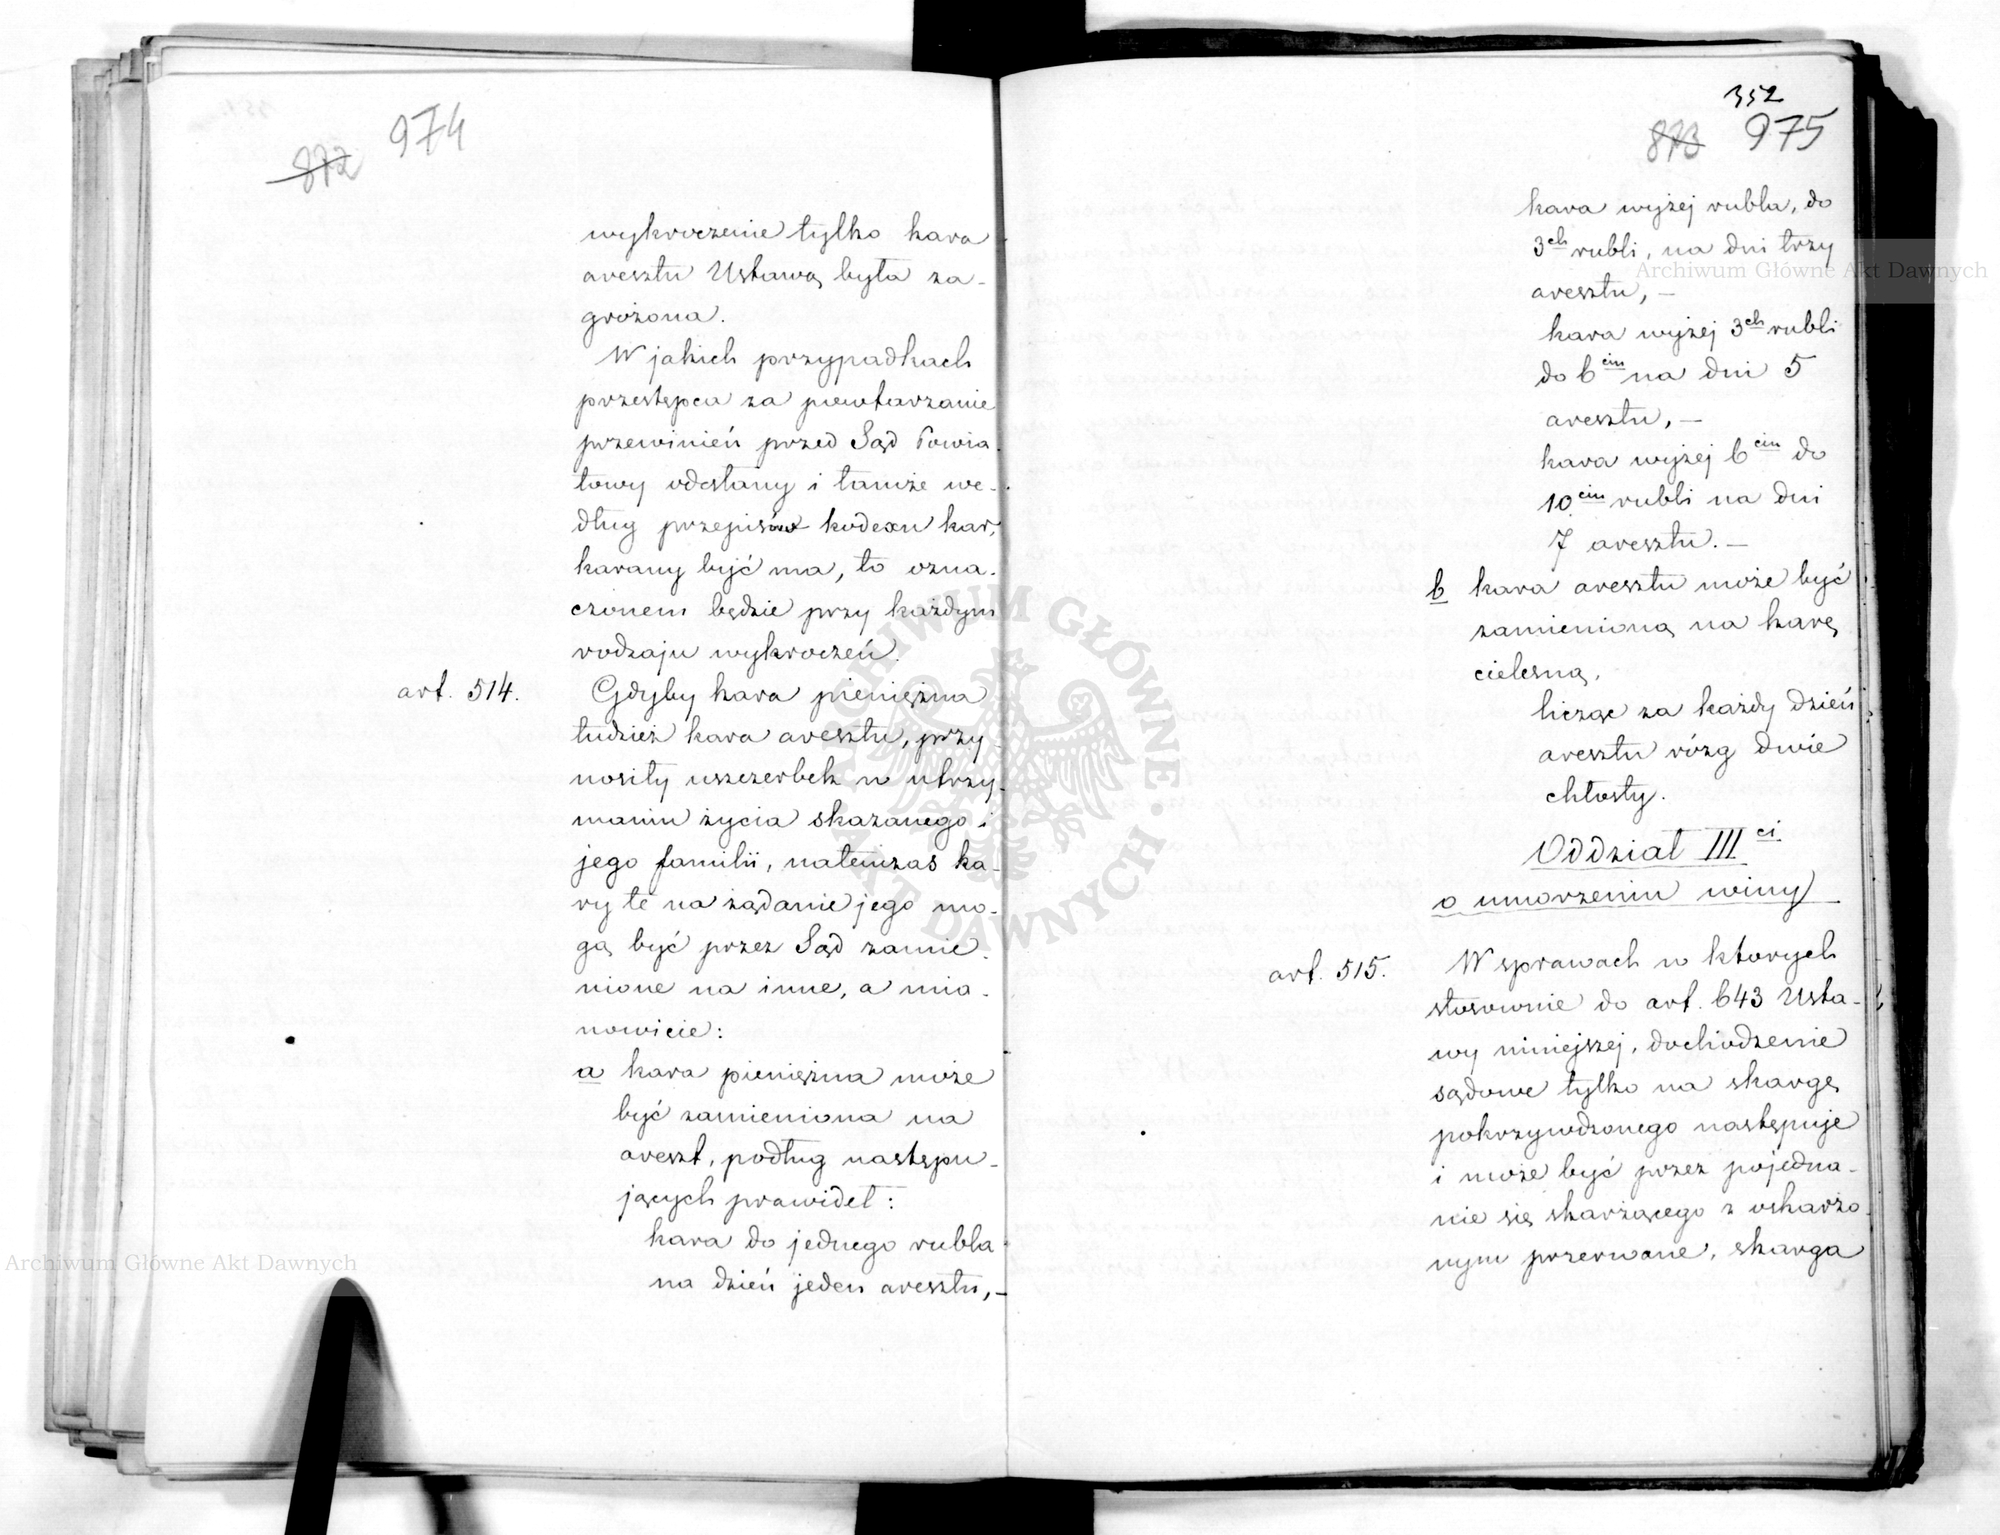 974
872
wykroczenie tylko kara
aresztu Ustawą była za-
grożona.
W jakich przypadkach
przestępca za powtarzanie
przewinień przed Sąd Powia-
towy odesłany i tamże we-
dług przepisów kodexu kar.
karany być ma, to ozna-
czonem będzie przy każdym
rodzaju wykroczeń.
art. 514. Gdyby kara pieniężna
tudzież kara aresztu, przy-
nosiły uszczerbek w utrzy-
maniu życia skazanego i
jego familii, natenczas ka-
ry te na żądanie jego mo-
gą być przez Sąd zamie-
nione na inne, a mia-
nowicie:
a kara pieniężna może
być zamieniona na
areszt, podług następu-
jących prawideł:
kara do jednego rubla
na dzień jeden aresztu,-
352
873 975
kara wyżej rubla, do
3ch rubli, na dni trzy
aresztu, -
kara wyżej 3ch rubli
do 6ciu na dni 5
aresztu, -
kara wyżej 6ciu do
10ciu rubli na dni
7 aresztu. -
b kara aresztu może być
zamienioną na karę
cielesną,
licząc za każdy dzień
aresztu rózg dwie
chłosty.
Oddział IIIci
o umorzeniu winy
art. 515. W sprawach w ktorych
stosownie do art. 643 Usta-
wy niniejszej, dochodzenie
sądowe tylko na skargę
pokrzywdzonego następuje
i może być przez pojedna-
nie się skarżącego z oskarżo-
nym przerwane, skarga
Archiwum Główne Akt Dawnych
Archiwum Główne Akt Dawnych
ARCHIWUM GŁÓWNE AKT DAWNYCH